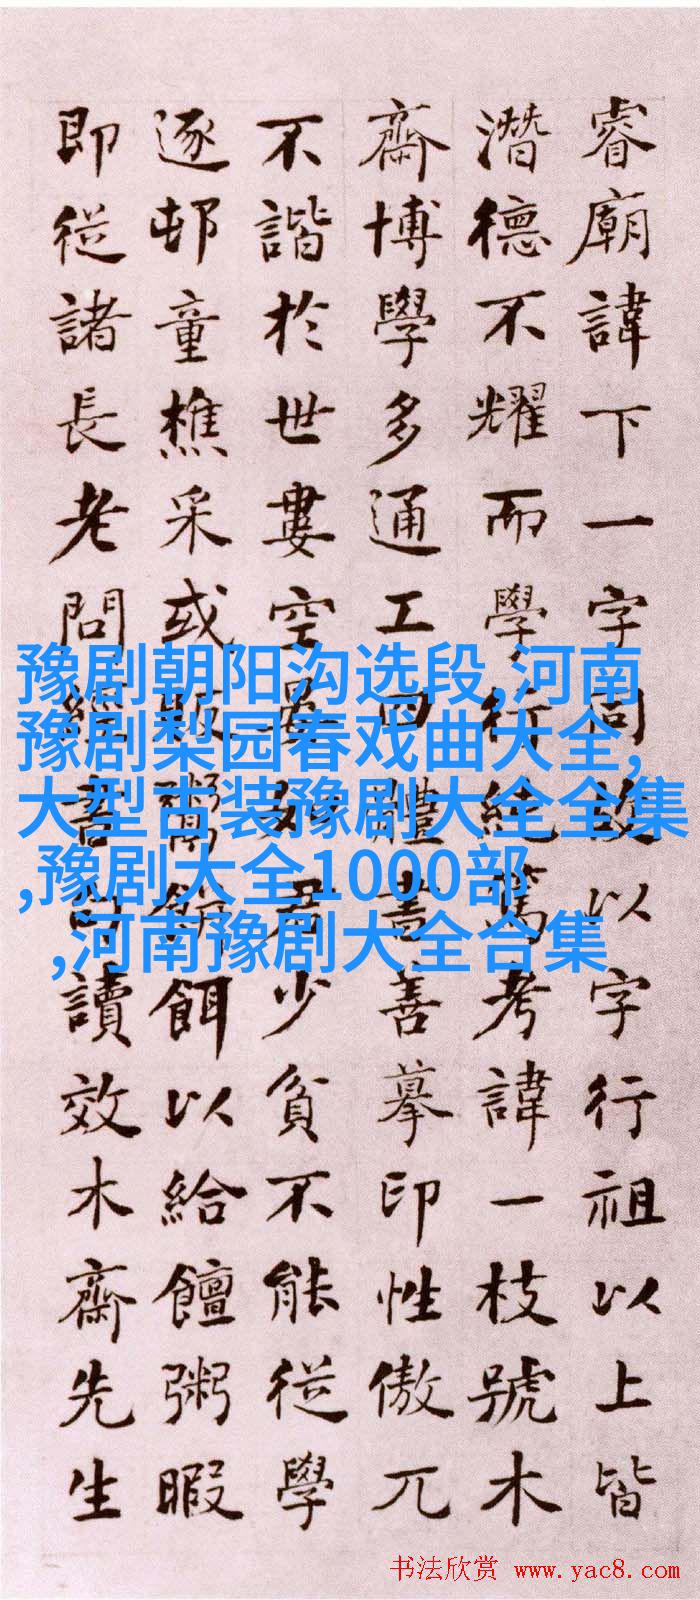 睿廟諱下一字同以字行祖以上皆
潛德不耀而學行純篤考諱一枝號木
齋博學多通工四體書善摹印性傲兀
不諧於世婁空晏如君少貧不能從學
逐邨童樵采或販鬻餅餌以給饘粥暇
即從諸長老問經書句讀效木齋先生
豫剧朝阳沟选段,河南
豫剧梨园春戏曲大全,
大型古装豫剧大全全集
,豫剧大全1000部
,河南豫剧大全合集
书法欣赏 www.yac8.com